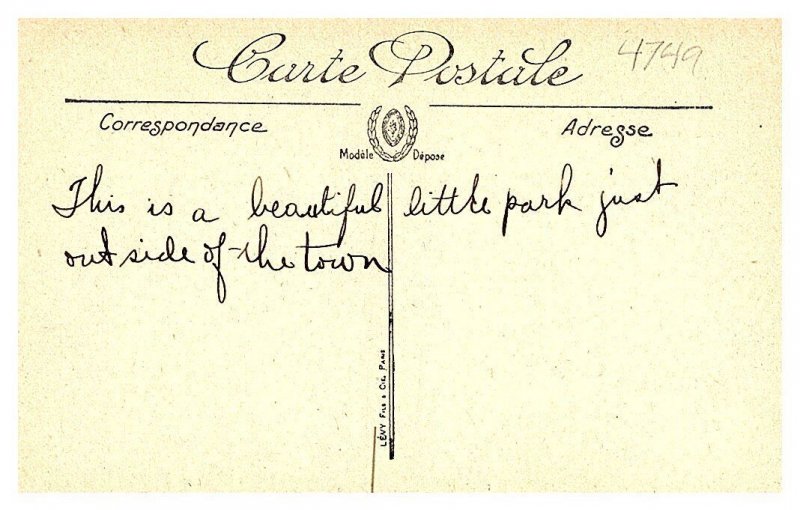 Carte Postale 4749
Correspondance Adresse
Modèle Dépose
This is a beautiful little park just
outside of the town
LÉVY Fils & Cie, Paris